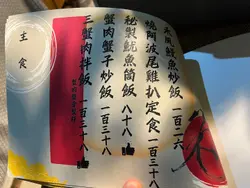 鰻魚炒飯 一百二六
燒阿波尾雞扒定食 一百三十八
秘製魷魚筒飯 八十八
蟹肉蟹子炒飯 一百三十八
三蟹肉拌飯 一百三十八
主食